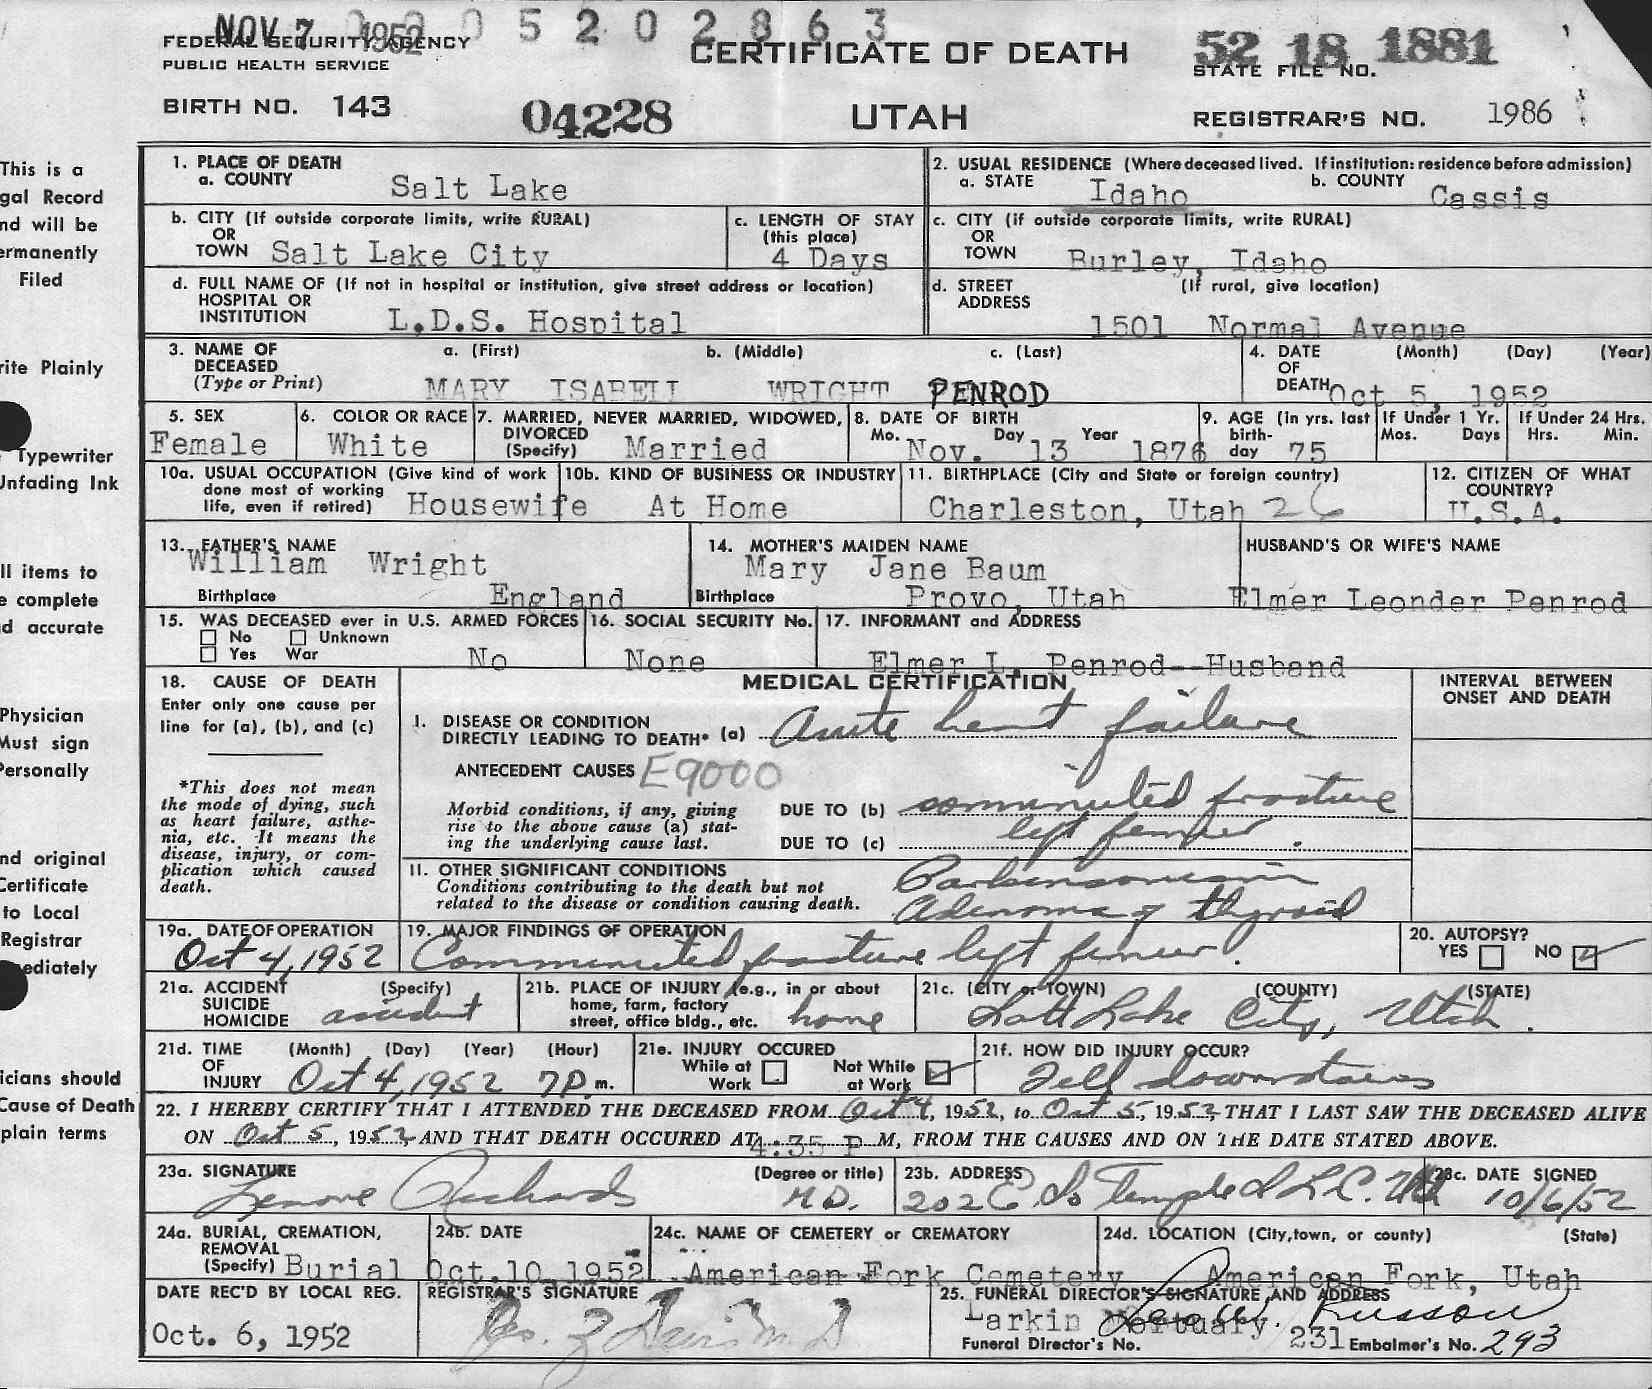 NOV 7 1952 0 5 2 0 2 8 6 3
FEDERAL SECURITY AGENCY
PUBLIC HEALTH SERVICE
CERTIFICATE OF DEATH
52 18 1881
STATE FILE NO.
BIRTH NO. 143
04228
UTAH
REGISTRAR'S NO. 1986
This is a
gal Record
nd will be
ermanently
Filed
rite Plainly
Typewriter
Unfading Ink
ll items to
e complete
d accurate
Physician
Must sign
Personally
nd original
Certificate
to Local
Registrar
ediately
icians should
Cause of Death
plain terms
1. PLACE OF DEATH
a. COUNTY Salt Lake
2. USUAL RESIDENCE (Where deceased lived. If institution: residence before admission)
a. STATE Idaho b. COUNTY Cassis
b. CITY (If outside corporate limits, write RURAL)
OR
TOWN Salt Lake City
c. LENGTH OF STAY
(this place)
4 Days
c. CITY (if outside corporate limits, write RURAL)
OR
TOWN Burley, Idaho
d. FULL NAME OF (If not in hospital or institution, give street address or location)
HOSPITAL OR
INSTITUTION L.D.S. Hospital
d. STREET (If rural, give location)
ADDRESS
1501 Normal Avenue
3. NAME OF DECEASED (Type or Print)
a. (First) b. (Middle) c. (Last)
MARY ISABELL WRIGHT PENROD
4. DATE OF DEATH (Month) (Day) (Year)
Oct 5, 1952
5. SEX
Female
6. COLOR OR RACE
White
7. MARRIED, NEVER MARRIED, WIDOWED,
DIVORCED
(Specify) Married
8. DATE OF BIRTH
Mo. Day Year
Nov. 13 1876
9. AGE (in yrs. last
birth-
day 75
If Under 1 Yr.
Mos. Days
If Under 24 Hrs.
Hrs. Min.
10a. USUAL OCCUPATION (Give kind of work
done most of working
life, even if retired) Housewife
10b. KIND OF BUSINESS OR INDUSTRY
At Home
11. BIRTHPLACE (City and State or foreign country)
Charleston, Utah 26
12. CITIZEN OF WHAT
COUNTRY?
U.S.A.
13. FATHER'S NAME
William Wright
Birthplace England
14. MOTHER'S MAIDEN NAME
Mary Jane Baum
Birthplace Provo, Utah
HUSBAND'S OR WIFE'S NAME
Elmer Leonder Penrod
15. WAS DECEASED ever in U.S. ARMED FORCES
No Unknown
Yes War No
16. SOCIAL SECURITY No.
None
17. INFORMANT and ADDRESS
Elmer L. Penrod--Husband
18. CAUSE OF DEATH
Enter only one cause per
line for (a), (b), and (c)
*This does not mean
the mode of dying, such
as heart failure, asthe-
nia, etc. It means the
disease, injury, or com-
plication which caused
death.
MEDICAL CERTIFICATION
INTERVAL BETWEEN
ONSET AND DEATH
I. DISEASE OR CONDITION
DIRECTLY LEADING TO DEATH* (a) Acute heart failure
ANTECEDENT CAUSES E9000
Morbid conditions, if any, giving
rise to the above cause (a) stat-
ing the underlying cause last.
DUE TO (b) comminuted fracture
left femur
DUE TO (c)
11. OTHER SIGNIFICANT CONDITIONS
Conditions contributing to the death but not
related to the disease or condition causing death.
Parkinsonism
Adenoma of thyroid
19a. DATE OF OPERATION
Oct 4, 1952
19. MAJOR FINDINGS OF OPERATION
Comminuted fracture left femur.
20. AUTOPSY?
YES NO
21a. ACCIDENT (Specify)
SUICIDE
HOMICIDE accident
21b. PLACE OF INJURY (e.g., in or about
home, farm, factory
street, office bldg., etc. home
21c. (CITY or TOWN) (COUNTY) (STATE)
Salt Lake City, Utah.
21d. TIME OF INJURY (Month) (Day) (Year) (Hour)
Oct 4, 1952 7 P m.
21e. INJURY OCCURED
While at Work Not While at Work
21f. HOW DID INJURY OCCUR?
Fell downstairs
22. I HEREBY CERTIFY THAT I ATTENDED THE DECEASED FROM Oct 4, 1952, to Oct 5, 1952, THAT I LAST SAW THE DECEASED ALIVE
ON Oct 5, 1952 AND THAT DEATH OCCURED AT 4:35 P M, FROM THE CAUSES AND ON THE DATE STATED ABOVE.
23a. SIGNATURE (Degree or title)
Lenore Richards M.D.
23b. ADDRESS
202 E So Temple S L C. Utah
23c. DATE SIGNED
10/6/52
24a. BURIAL, CREMATION,
REMOVAL
(Specify) Burial
24b. DATE
Oct.10 1952
24c. NAME OF CEMETERY or CREMATORY
American Fork Cemetery
24d. LOCATION (City, town, or county) (State)
American Fork, Utah
DATE REC'D BY LOCAL REG.
Oct. 6, 1952
REGISTRAR'S SIGNATURE
25. FUNERAL DIRECTOR'S SIGNATURE AND ADDRESS
Larkin Mortuary
Funeral Director's No. 231 Embalmer's No. 293